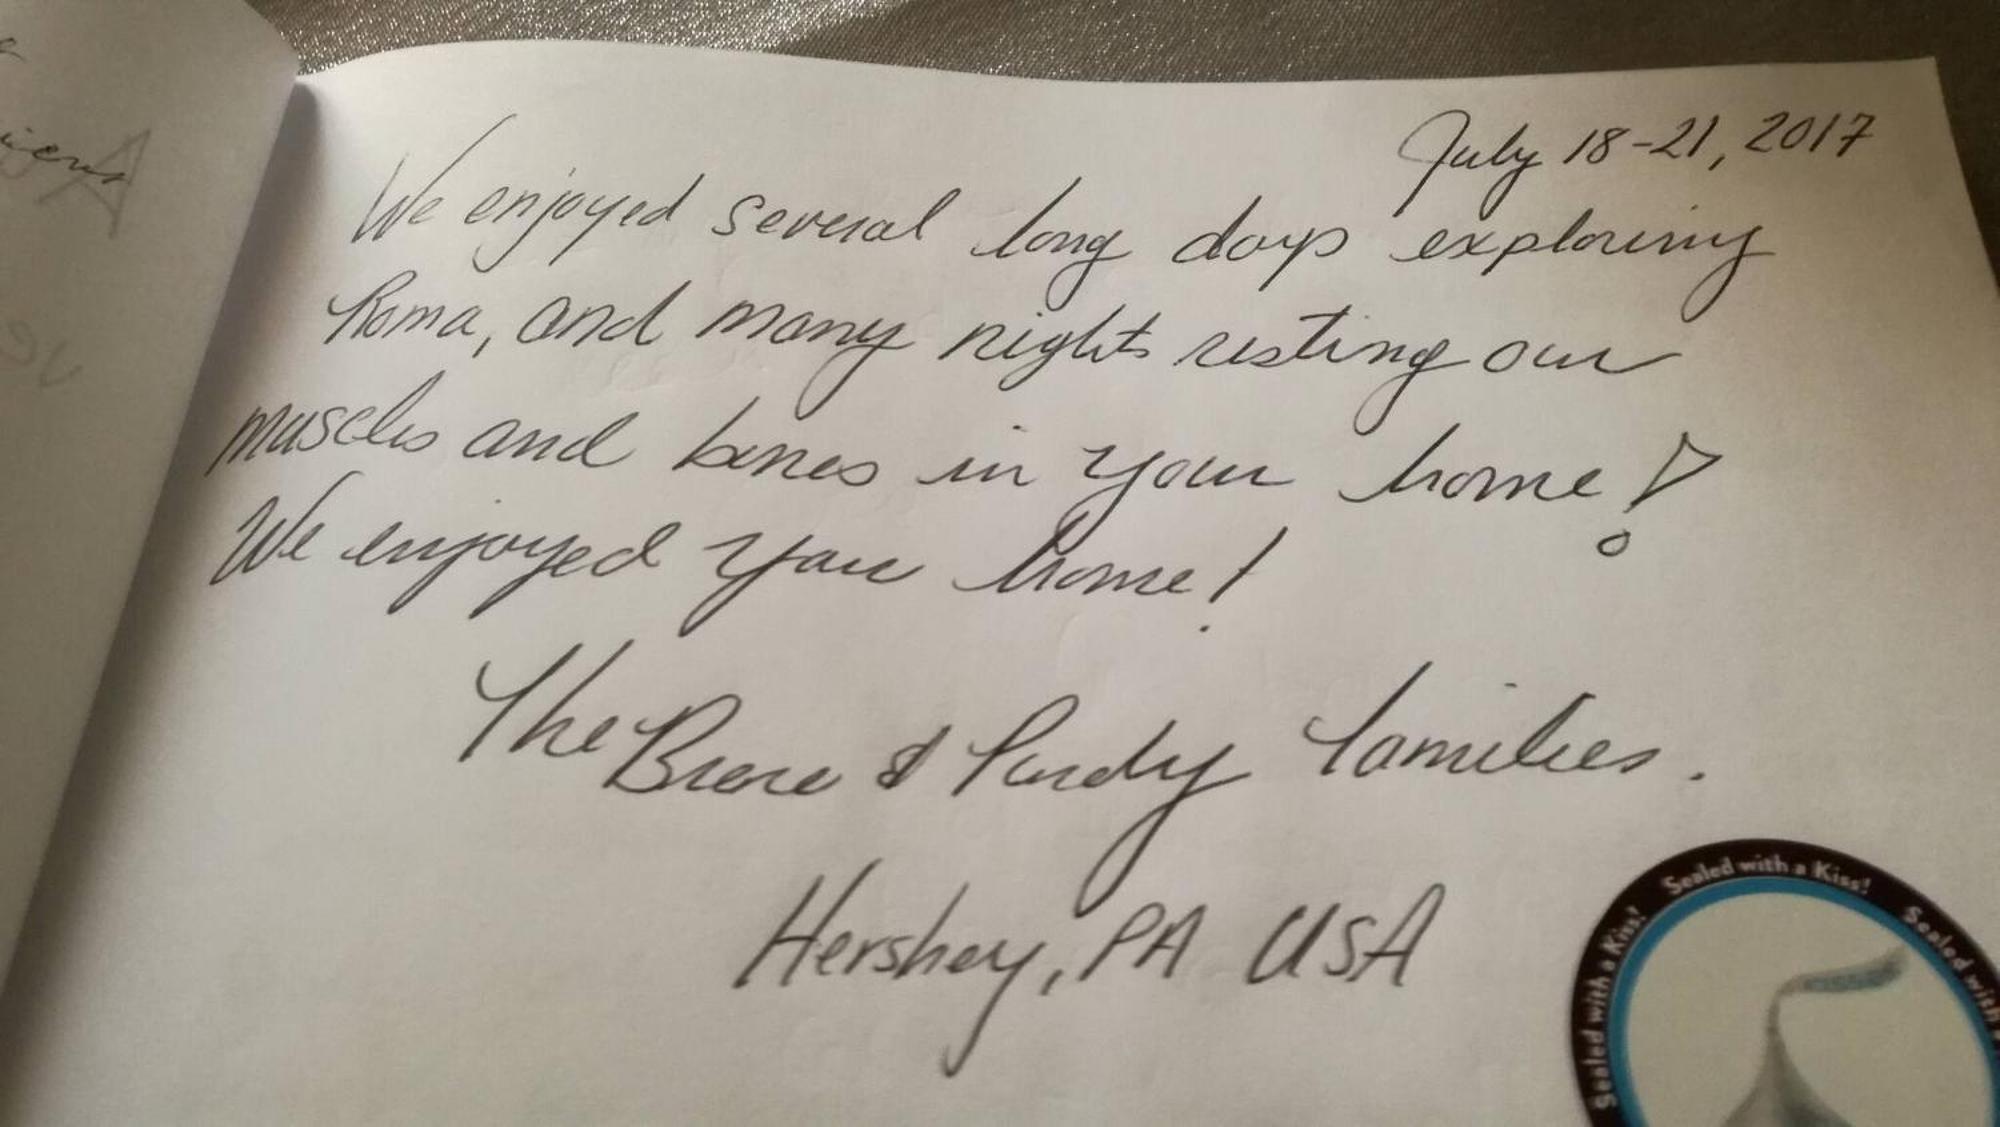 July 18-21, 2017
We enjoyed several long days exploring
Roma, and many nights resting our
muscles and bones in your home!
We enjoyed your home!
The & Purdy families.
Hershey, PA USA
Sealed with a Kiss!
Sealed with a Kiss!
Sealed with